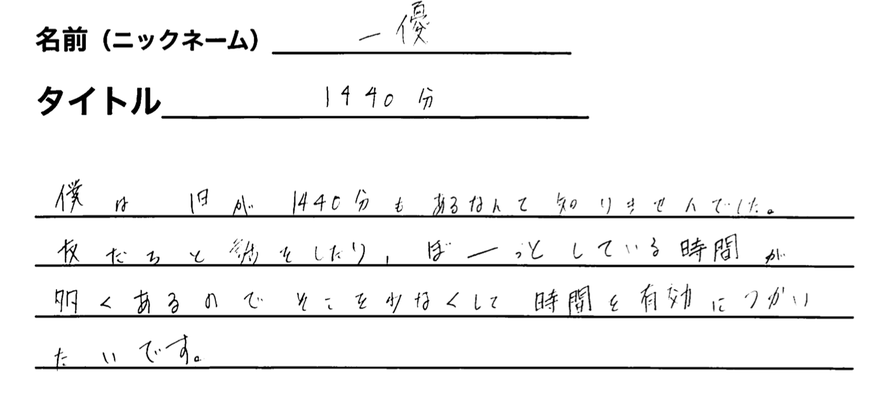 名前（ニックネーム） 一優
タイトル 1440分
僕は 1日が 1440分もあるなんて知りませんでした。
友だちと話をしたり、ぼーっとしている時間が
多くあるのでそこを少なくして時間を有効につかい
たいです。